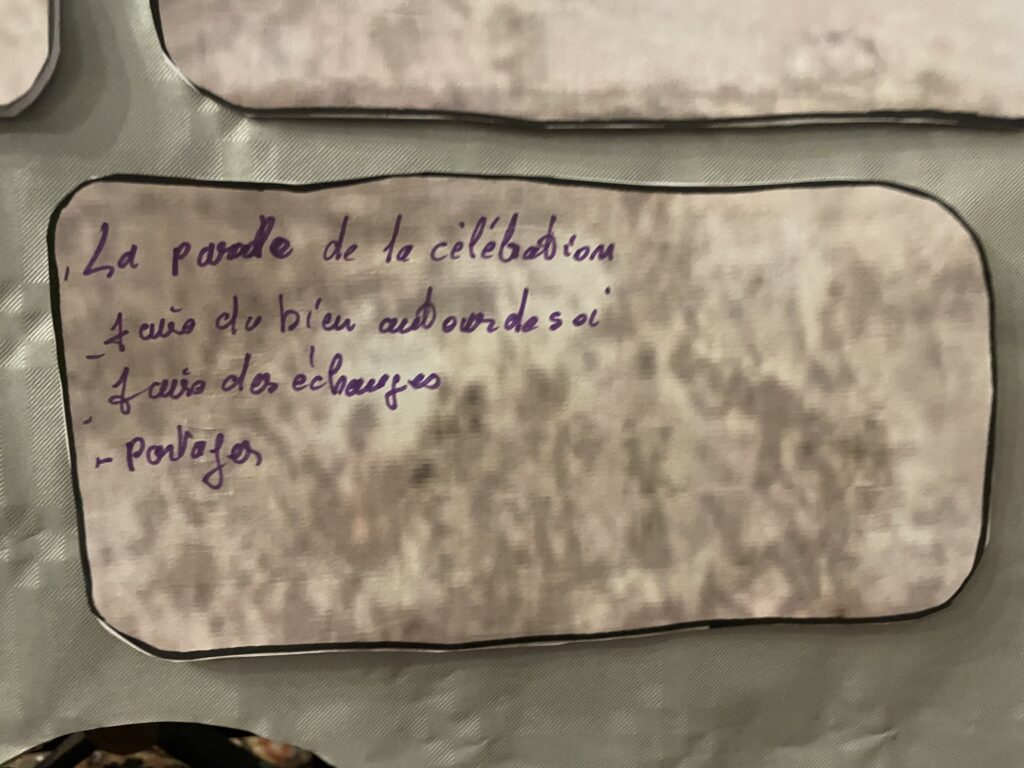 La parade de la célébration
- faire du bien autour de soi
- faire des échanges
- partager